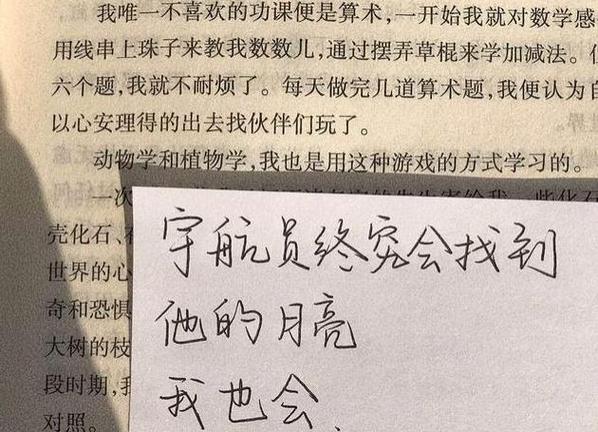 我唯一不喜欢的功课便是算术，一开始我就对数学感
用线串上珠子来教我数数儿，通过摆弄草棍来学加减法。
六个题，我就不耐烦了。每天做完几道算术题，我便认为自
以心安理得的出去找伙伴们玩了。
动物学和植物学，我也是用这种游戏的方式学习的。
一次
些化石
壳化石、
世界的心
奇和恐惧
大树的枝
段时期，
对照。
宇航员终究会找到
他的月亮
我也会.